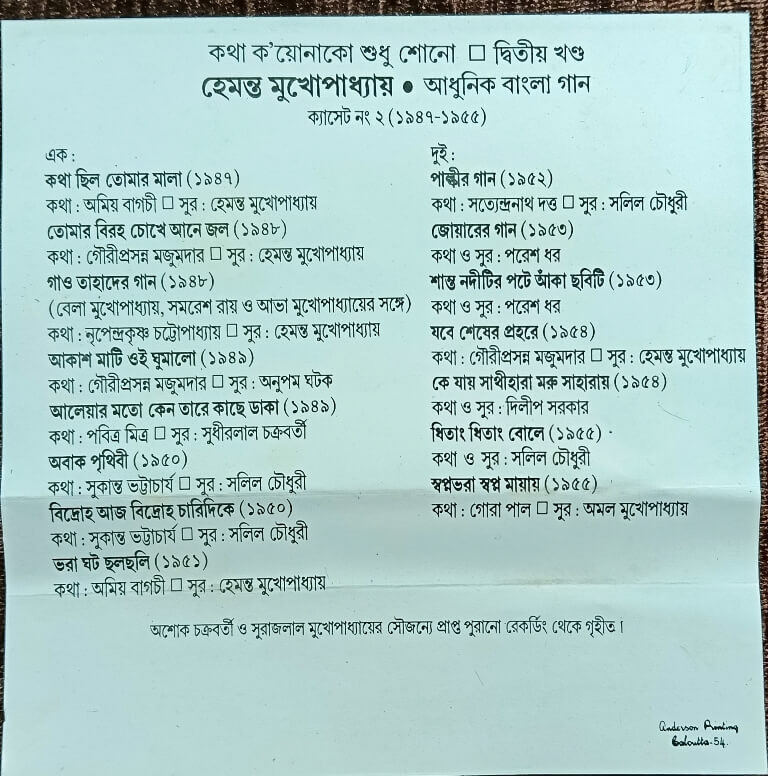 কথা ক'য়োনাকো শুধু শোনো □ দ্বিতীয় খণ্ড
হেমন্ত মুখোপাধ্যায় ● আধুনিক বাংলা গান
ক্যাসেট নং ২ (১৯৪৭-১৯৫৫)
এক :
কথা ছিল তোমার মালা (১৯৪৭)
কথা : অমিয় বাগচী □ সুর : হেমন্ত মুখোপাধ্যায়
তোমার বিরহ চোখে আনে জল (১৯৪৮)
কথা : গৌরীপ্রসন্ন মজুমদার □ সুর : হেমন্ত মুখোপাধ্যায়
গাও তাহাদের গান (১৯৪৮)
(বেলা মুখোপাধ্যায়, সমরেশ রায় ও আভা মুখোপাধ্যায়ের সঙ্গে)
কথা : নৃপেন্দ্রকৃষ্ণ চট্টোপাধ্যায় □ সুর : হেমন্ত মুখোপাধ্যায়
আকাশ মাটি ওই ঘুমালো (১৯৪৯)
কথা : গৌরীপ্রসন্ন মজুমদার □ সুর : অনুপম ঘটক
আলেয়ার মতো কেন তারে কাছে ডাকা (১৯৪৯)
কথা : পবিত্র মিত্র □ সুর : সুধীরলাল চক্রবর্তী
অবাক পৃথিবী (১৯৫০)
কথা : সুকান্ত ভট্টাচার্য □ সুর : সলিল চৌধুরী
বিদ্রোহ আজ বিদ্রোহ চারিদিকে (১৯৫০)
কথা : সুকান্ত ভট্টাচার্য □ সুর : সলিল চৌধুরী
ভরা ঘট ছলছলি (১৯৫১)
কথা : অমিয় বাগচী □ সুর : হেমন্ত মুখোপাধ্যায়
দুই :
পাল্কীর গান (১৯৫২)
কথা : সত্যেন্দ্রনাথ দত্ত □ সুর : সলিল চৌধুরী
জোয়ারের গান (১৯৫৩)
কথা ও সুর : পরেশ ধর
শান্ত নদীটির পটে আঁকা ছবিটি (১৯৫৩)
কথা ও সুর : পরেশ ধর
যবে শেষের প্রহরে (১৯৫৪)
কথা : গৌরীপ্রসন্ন মজুমদার □ সুর : হেমন্ত মুখোপাধ্যায়
কে যায় সাথীহারা মরু সাহারায় (১৯৫৪)
কথা ও সুর : দিলীপ সরকার
ধিতাং ধিতাং বোলে (১৯৫৫)
কথা ও সুর : সলিল চৌধুরী
স্বপ্নভরা স্বপ্ন মায়ায় (১৯৫৫)
কথা : গোরা পাল □ সুর : অমল মুখোপাধ্যায়
অশোক চক্রবর্তী ও সুরাজলাল মুখোপাধ্যায়ের সৌজন্যে প্রাপ্ত পুরানো রেকর্ডিং থেকে গৃহীত।
Anderson Printing
Calcutta-54.